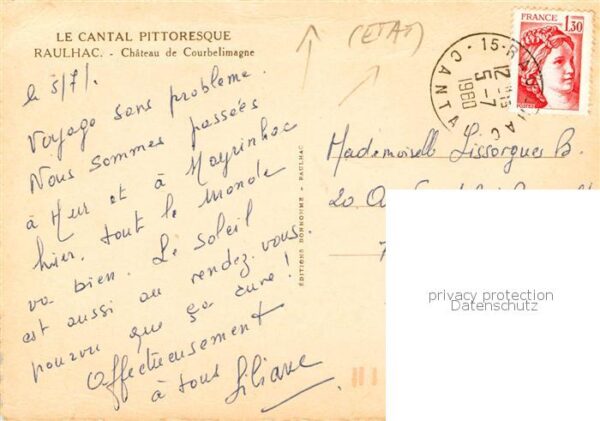 LE CANTAL PITTORESQUE
RAULHAC. - Château de Courbelimagne
le 5/7/.
Voyage sans problème.
Nous sommes passées
à Mur et à Mayrinhac
hier. tout le monde
va bien. Le soleil
est aussi au rendez-vous.
pourvu que ça dure!
Affectueusement
à tous Liliane
EDITIONS BONHOMME - RAULHAC
(ETAT)
15-RAULHAC
12
5-7
1980
CANTAL
FRANCE
1,30
Mademoiselle Lissorgues B.
20
privacy protection
Datenschutz